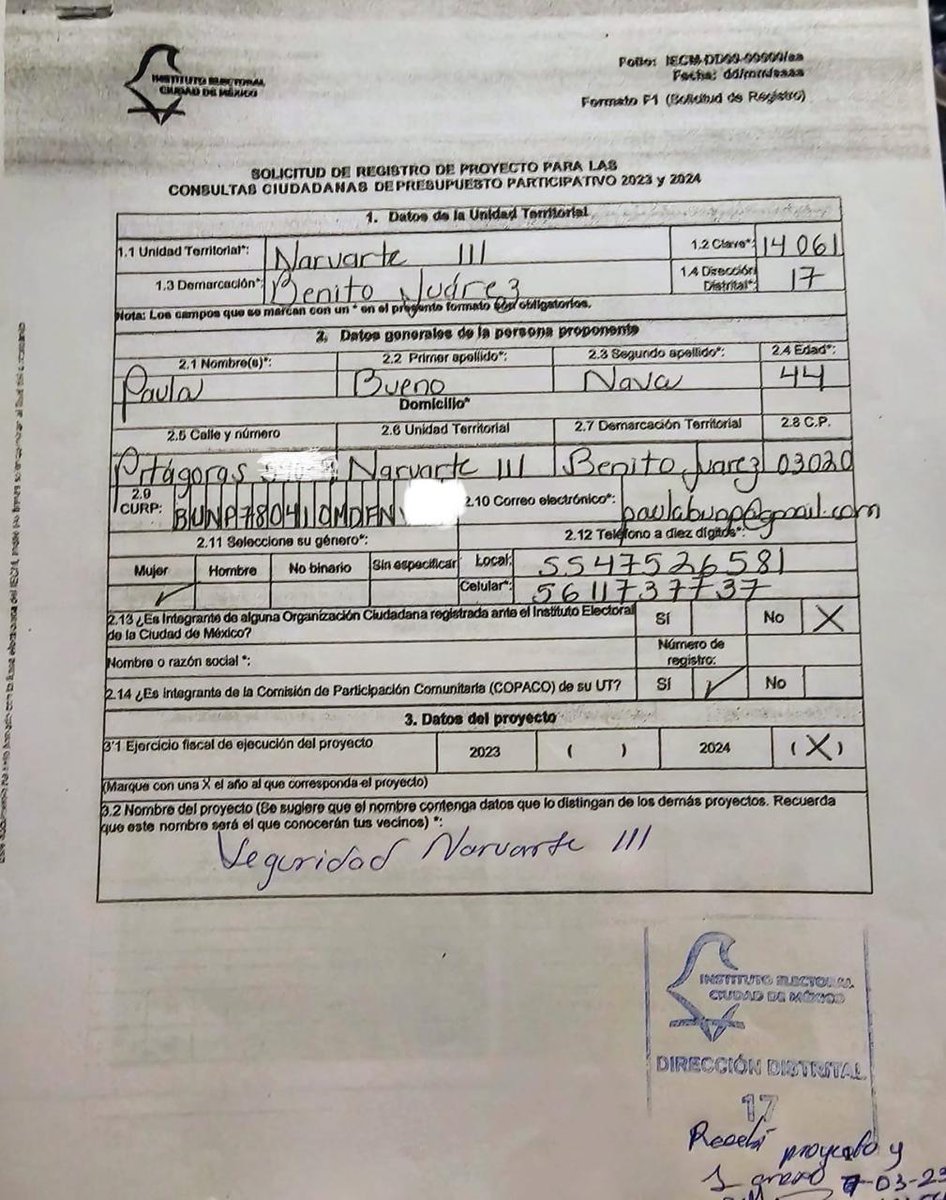 INSTITUTO ELECTORAL
CIUDAD DE MÉXICO
Folio: IECM-DD00-00000/aa
Fecha: dd/mm/aaaa
Formato F1 (Solicitud de Registro)
SOLICITUD DE REGISTRO DE PROYECTO PARA LAS
CONSULTAS CIUDADANAS DE PRESUPUESTO PARTICIPATIVO 2023 y 2024
1. Datos de la Unidad Territorial
1.1 Unidad Territorial*: Narvarte III 1.2 Clave*: 14 061
1.3 Demarcación*: Benito Juárez 1.4 Dirección Distrital*: 17
Nota: Los campos que se marcan con un * en el presente formato son obligatorios.
2. Datos generales de la persona proponente
2.1 Nombre(s)*: 2.2 Primer apellido*: 2.3 Segundo apellido*: 2.4 Edad*:
Paula Bueno Nava 44
Domicilio*
2.5 Calle y número 2.6 Unidad Territorial 2.7 Demarcación Territorial 2.8 C.P.
Pitágoras Narvarte III Benito Juarez 03020
2.9 CURP: BUNP780410MDFN 2.10 Correo electrónico*: paulabunp@gmail.com
2.11 Seleccione su género*: 2.12 Teléfono a diez dígitos*:
Mujer Hombre No binario Sin especificar Local: 5547526581
Celular*: 5611737737
2.13 ¿Es integrante de alguna Organización Ciudadana registrada ante el Instituto Electoral Sí No X
de la Ciudad de México?
Nombre o razón social *: Número de registro:
2.14 ¿Es integrante de la Comisión de Participación Comunitaria (COPACO) de su UT? Sí No
3. Datos del proyecto
3.1 Ejercicio fiscal de ejecución del proyecto 2023 ( ) 2024 (X)
(Marque con una X el año al que corresponda el proyecto)
3.2 Nombre del proyecto (Se sugiere que el nombre contenga datos que lo distingan de los demás proyectos. Recuerda
que este nombre será el que conocerán tus vecinos) *:
Seguridad Narvarte III
INSTITUTO ELECTORAL
CIUDAD DE MÉXICO
DIRECCIÓN DISTRITAL
17
Recibí proyecto y
1 anexo 7-03-23